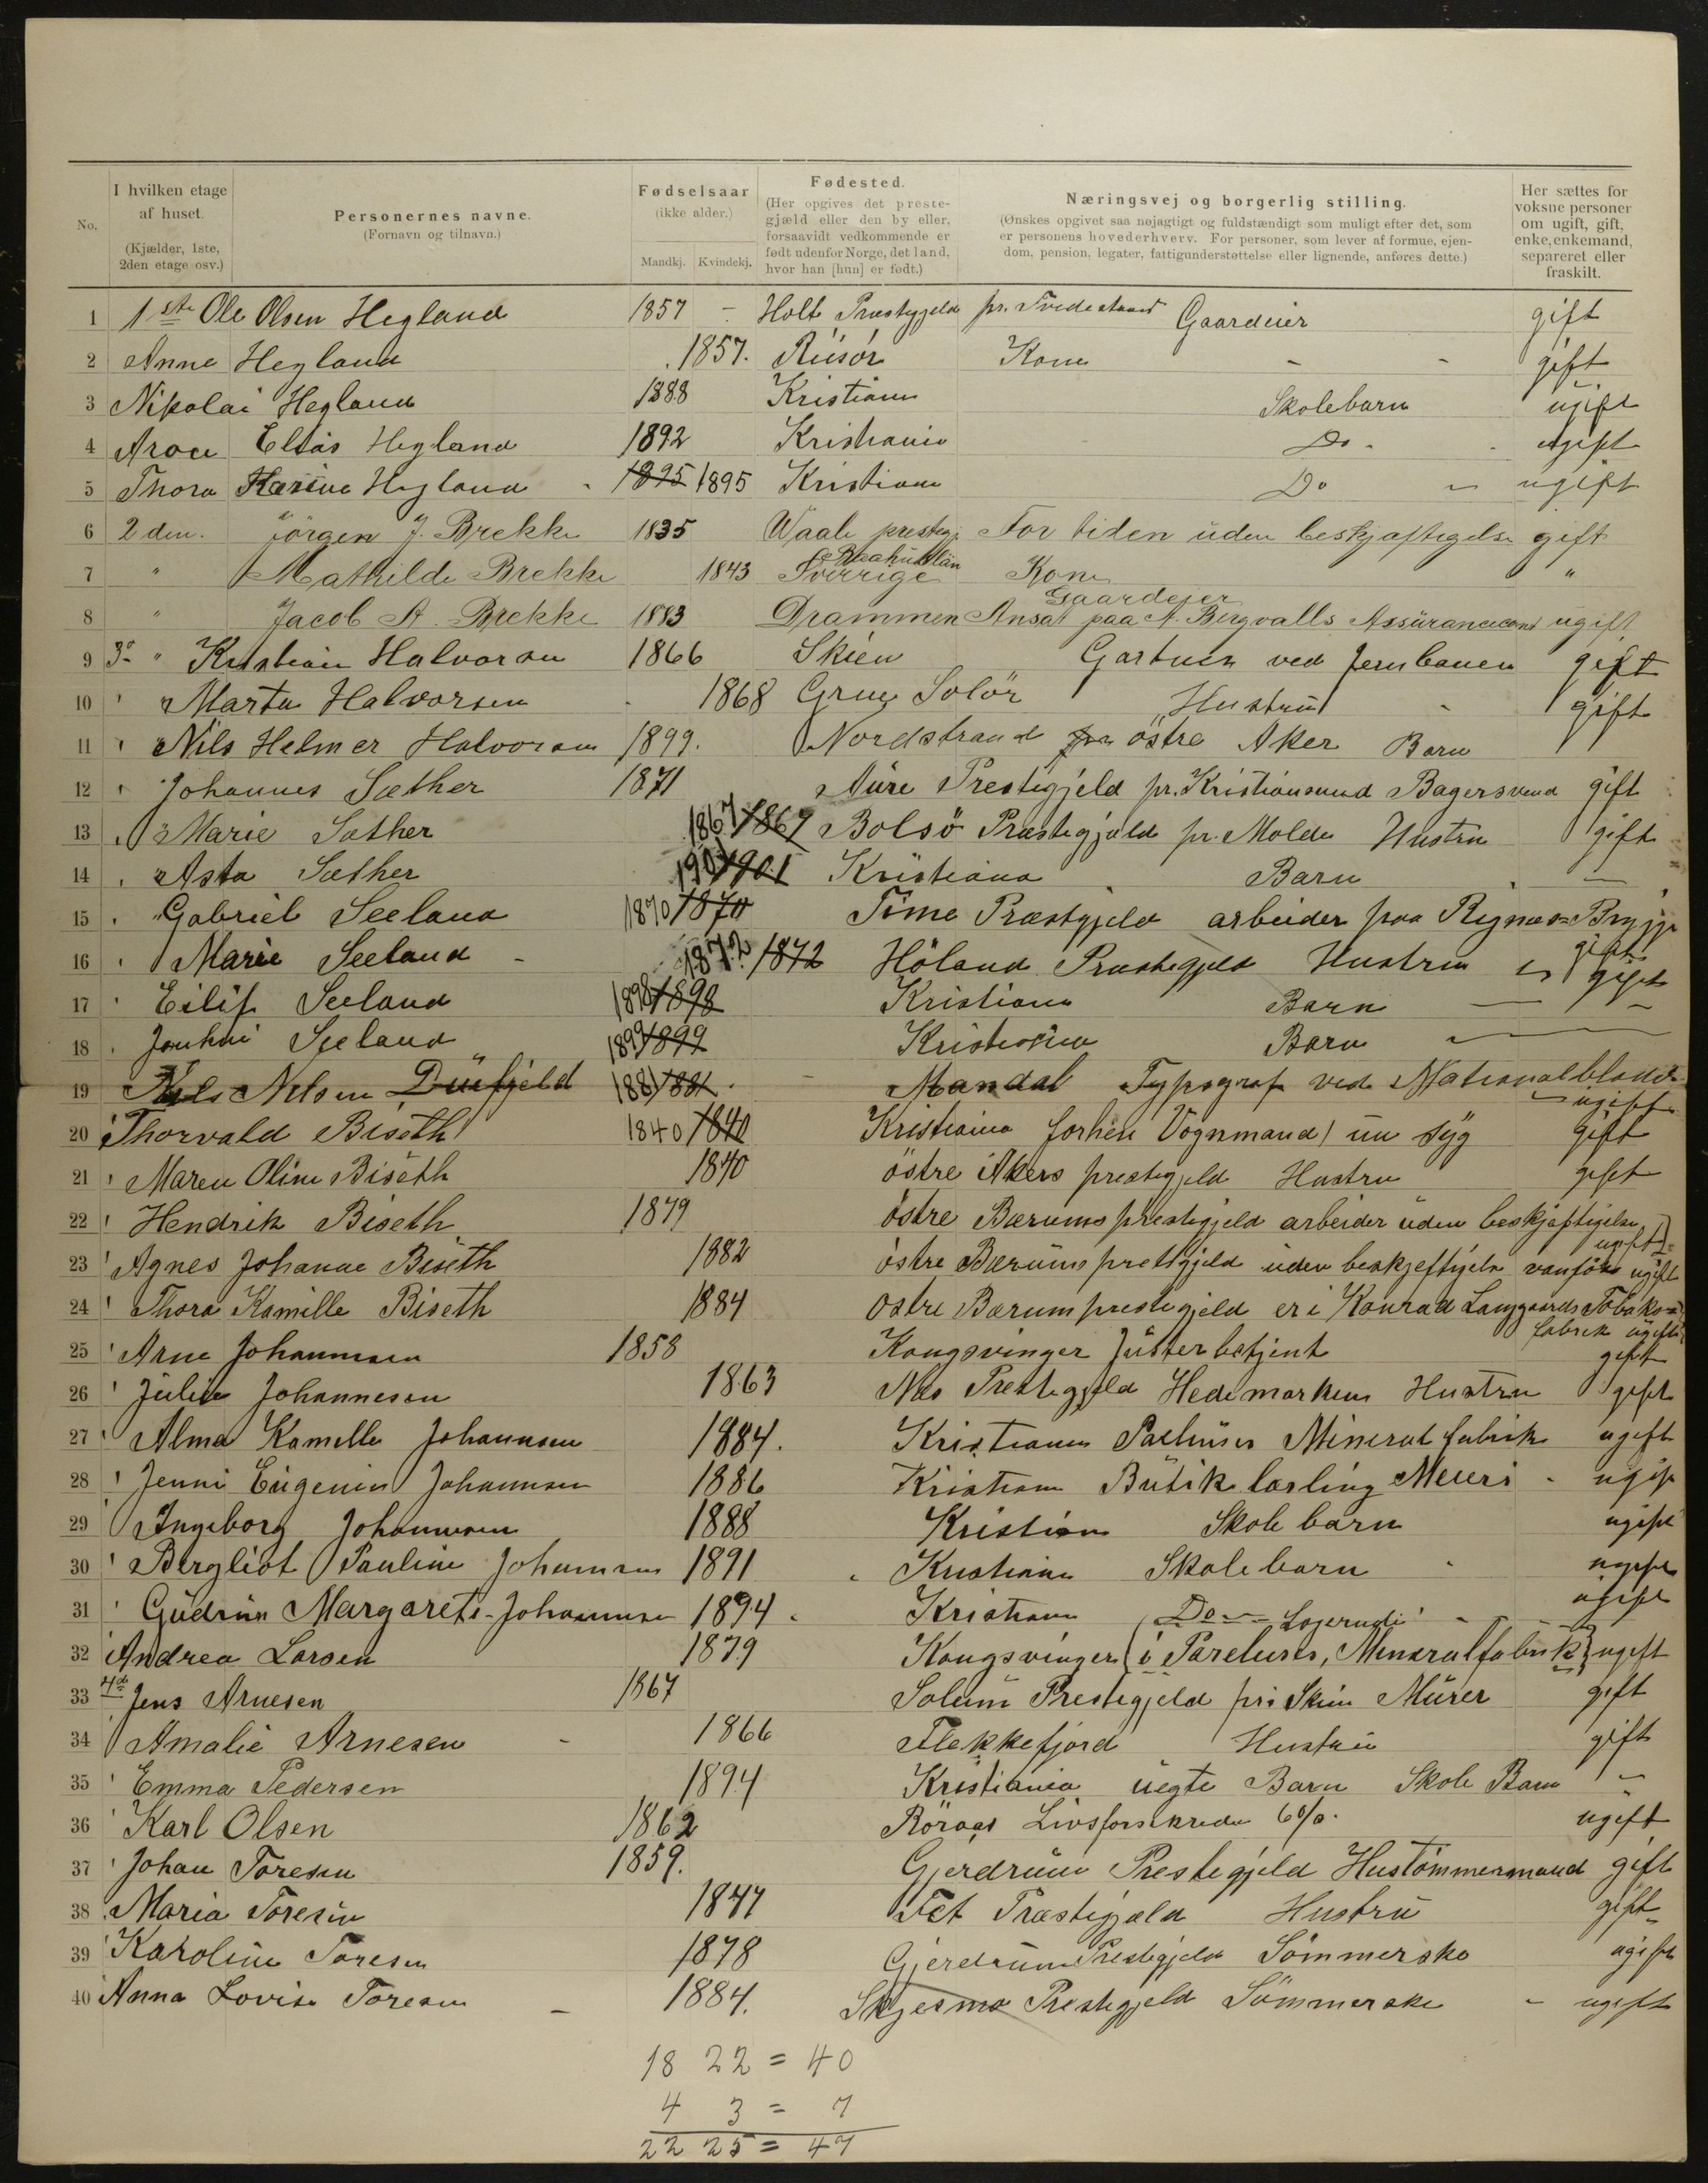 No. I hvilken etage af huset. (Kjælder, 1ste, 2den etage osv.) Personernes navne. (Fornavn og tilnavn.) Fødselsaar (ikke alder.) Mandkj. Kvindekj. Fødested. (Her opgives det prestegjæld eller den by eller, forsaavidt vedkommende er født udenfor Norge, det land, hvor han [hun] er født.) Næringsvej og borgerlig stilling. (Ønskes opgivet saa nøjagtigt og fuldstændigt som muligt efter det, som er personens hovederhverv. For personer, som lever af formue, ejendom, pension, legater, fattigunderstøttelse eller lignende, anføres dette.) Her sættes for voksne personer om ugift, gift, enke, enkemand, separeret eller fraskilt.
1 1ste Ole Olsen Hegland 1857 - Holt Præstegjeld pr. Tvedestrand Gaardeier gift
2 Anne Hegland 1857. Riisør Kone - - gift
3 Nikolai Hegland 1888 Kristiania Skolebarn ugift
4 Elias Hegland 1892 Kristiania Do - ugift
5 Thora Karine Hegland 1895 1895 Kristiania Do ugift
6 2den. Jörgen J. Brekke 1835 Waale prestegj. For tiden uden beskjæftigelse gift
7 " Mathilde Brekke 1843 Sverrige Kone "
Gaardeier
8 " Jacob A. Brekke 1883 Drammen Ansat paa A. Bergvalls Assürancecont ugift
9 3 " Kristian Halvorsen 1866 Skien Gartner ved Jernbanen gift
10 Marta Halvorsen 1868 Grue Solör Hustru gift
11 Nils Helmer Halvorsen 1899. Nordstrand östre Aker Barn
12 Johannes Sæther 1871 Aüre Prestegjeld pr. Kristiansund Bagersvend gift
13 Marie Sæther 1867 1867 Bolsö Præstegjæld pr. Molde Hustru gift
14 Asta Sæther 1901 1901 Kristiania Barn -
15 Gabriel Seeland 1870 1870 Time Præstgjeld arbeider paa Rignæs Brygge
gift
16 Marie Seeland 1872 1872 Höland Præstegjeld Hustru gift
17 Eilif Seeland 1898 1898 Kristiania Barn -
18 Seeland 1899 1899 Kristiania Barn
19 Nils Nilsen Düefjeld 1881 1881 Mandal Typograf ved Nationalbladet
ugift
20 Thorvald Biseth 1840 1840 Kristiania forhen Vognmand nu syg gift
21 Maren Oline Biseth 1840 östre Akers prestegjeld Hustru gift
22 Hendrik Biseth 1879 östre Bærums prestegjeld arbeider uden beskjæftigelse
ugift
23 Agnes Johanne Biseth 1882 östre Bærums prestgjeld uden beskjeftigelse vanför ugift
24 Thora Kamille Biseth 1884 Östre Bærum prestegjeld er i Konrad Langgaards Tobaks
fabrik ugift
25 Arne Johannesen 1858 Kongsvinger Jüsterbetjent gift
26 Julie Johannesen 1863 Næs Prestegjeld Hedemarken Hustru gift
27 Alma Kamille Johannesen 1884. Kristiania Mineral fabrik ugift
28 Jenni Eugenie Johannesen 1886 Kristiania Bütik lærling Meieri - ugift
29 Ingeborg Johannesen 1888 Kristiania Skole barn ugift
30 Bergliot Pauline Johannesen 1891 Kristiania Skolebarn ugift
31 Güdrün Margarete Johannesen 1894. Kristiania Do ugift
Logerende
32 Andrea Larsen 1879 Kongsvinger i Mineralfabrik ugift
33 4de Jens Arnesen 1867 Solum Prestegjeld pr. Skien Mürer gift
34 Amalie Arnesen - 1866 Flekkefjord Hustru gift
35 Emma Pedersen 1894 Kristiania üegte Barn Skole Barn -
36 Karl Olsen 1862 Röraas 6%. ugift
37 Johan Toresen 1859. Gjerdrum Prestegjeld Hustömmermand gift
38 Maria Toresen 1847 Fet Præstegjæld Hustru gift
39 Karoline Toresen 1878 Gjerdrum Prestegjeld Sömmerske ugift
40 Anna Lovise Toresen - 1884. Skjesmo Prestegjeld Sömmerske - ugift
18 22 = 40
4 3 = 7
22 25 = 47